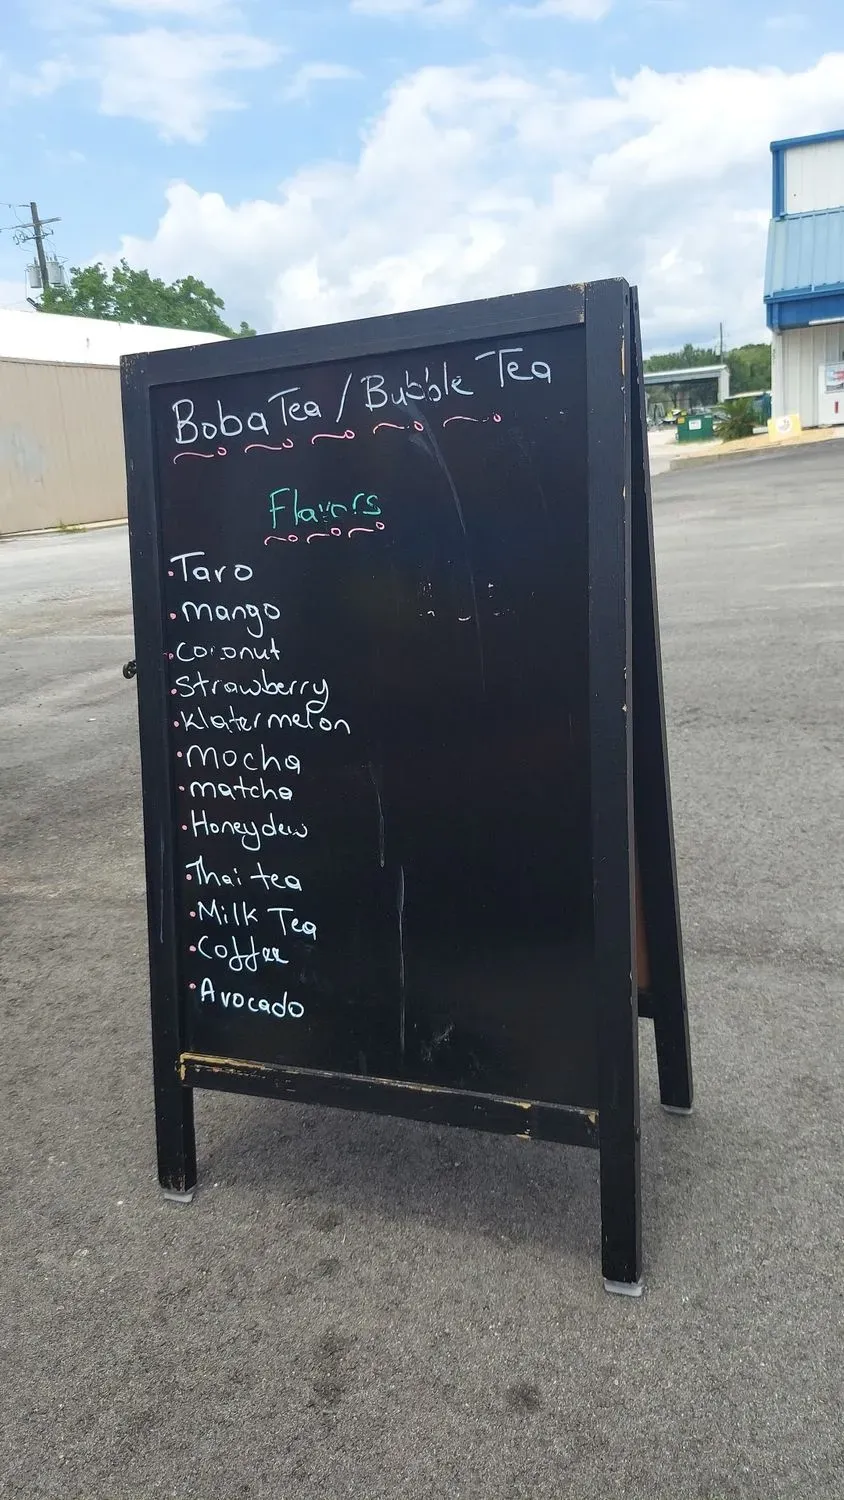 Boba Tea / Bubble Tea
Flavors
• Taro
• mango
• coconut
• Strawberry
• Watermelon
• Mocha
• matcha
• Honeydew
• Thai tea
• Milk Tea
• Coffee
• Avocado